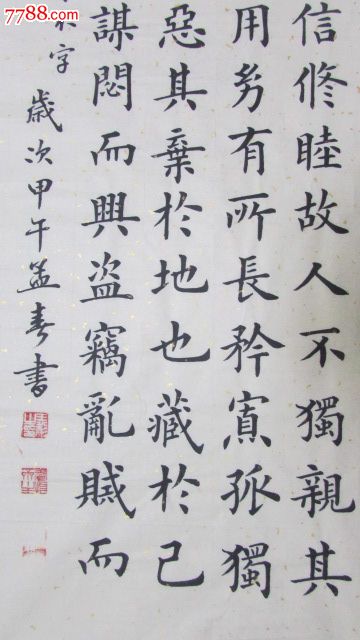 7788.com
信修睦故人不獨親其
用男有所長矜寡孤獨
惡其棄於地也藏於己
謀閉而興盜竊亂賊而
字
歲次甲午孟春書